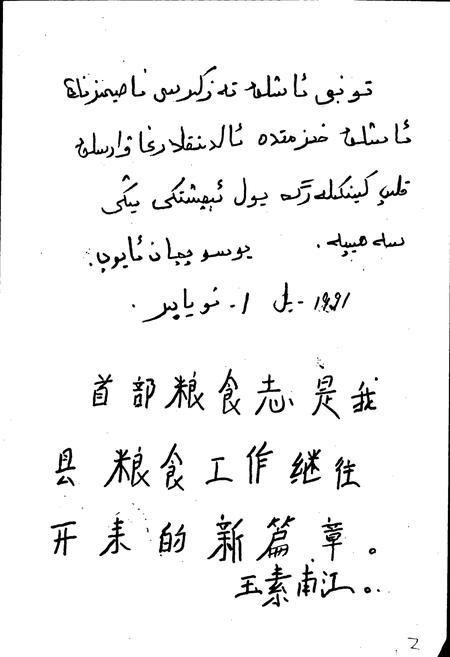 تونجى ئاشلىق تەزكىرىسى ناھىيىمىزنىڭ
ئاشلىق خىزمىتىدە ئالدىنقىلارغا ۋارىسلىق
قىلىپ كېيىنكىلەرگە يول ئېچىشتىكى يېڭى
سەھىپە. يۈسۈپجان ئايۇپ.
1991-يىل 1-نويابىر.
首部粮食志是我
县粮食工作继往
开来的新篇章。
玉素甫江。
2